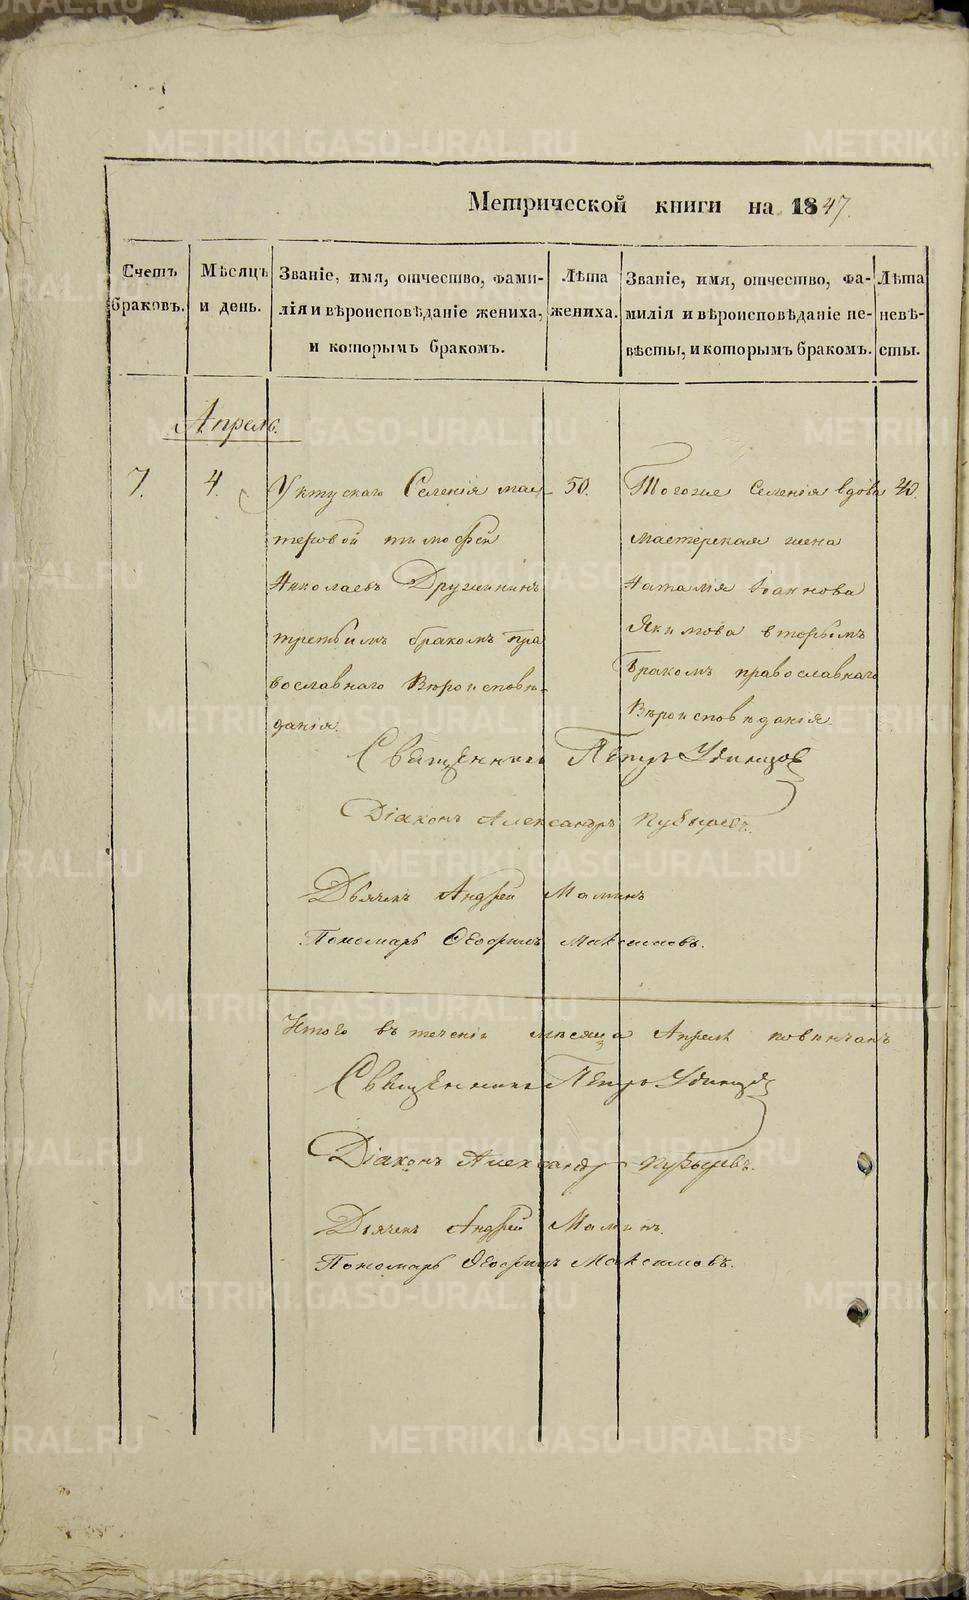 Метрической книги на 1847.
Счетъ браковъ.
Мѣсяцъ и день.
Званіе, имя, отчество, фами-
лія и вѣроисповѣданіе жениха,
и которымъ бракомъ.
Лѣта
жениха.
Званіе, имя, отчество, фа-
милія и вѣроисповѣданіе не-
вѣсты, и которымъ бракомъ.
Лѣта
невѣ-
сты.
Апрель.
7.
4.
Уктускаго Селенія мас-
теровой тимофей
Николаевъ Дружининъ
третьимъ бракомъ пра
вославнаго Вѣроисповѣ-
данія.
50.
Тогоже Селенія вдова
мастерская жена
Наталія Іоаннова
Якимова вторымъ
бракомъ православнаго
Вѣроисповѣданія.
40.
Священникъ Петръ Удинцов
Діаконъ Александръ
Дьячекъ Андрей Маминъ
Пономарь Ѳеофилъ Максимовъ.
Итого въ теченіи мѣсяца Апреля повѣнчанъ
Священникъ Петръ Удинцов
Діаконъ Александръ
Дьячекъ Андрей Маминъ.
Пономарь Ѳеофилъ Максимовъ.
METRIKI.GASO-URAL.RU